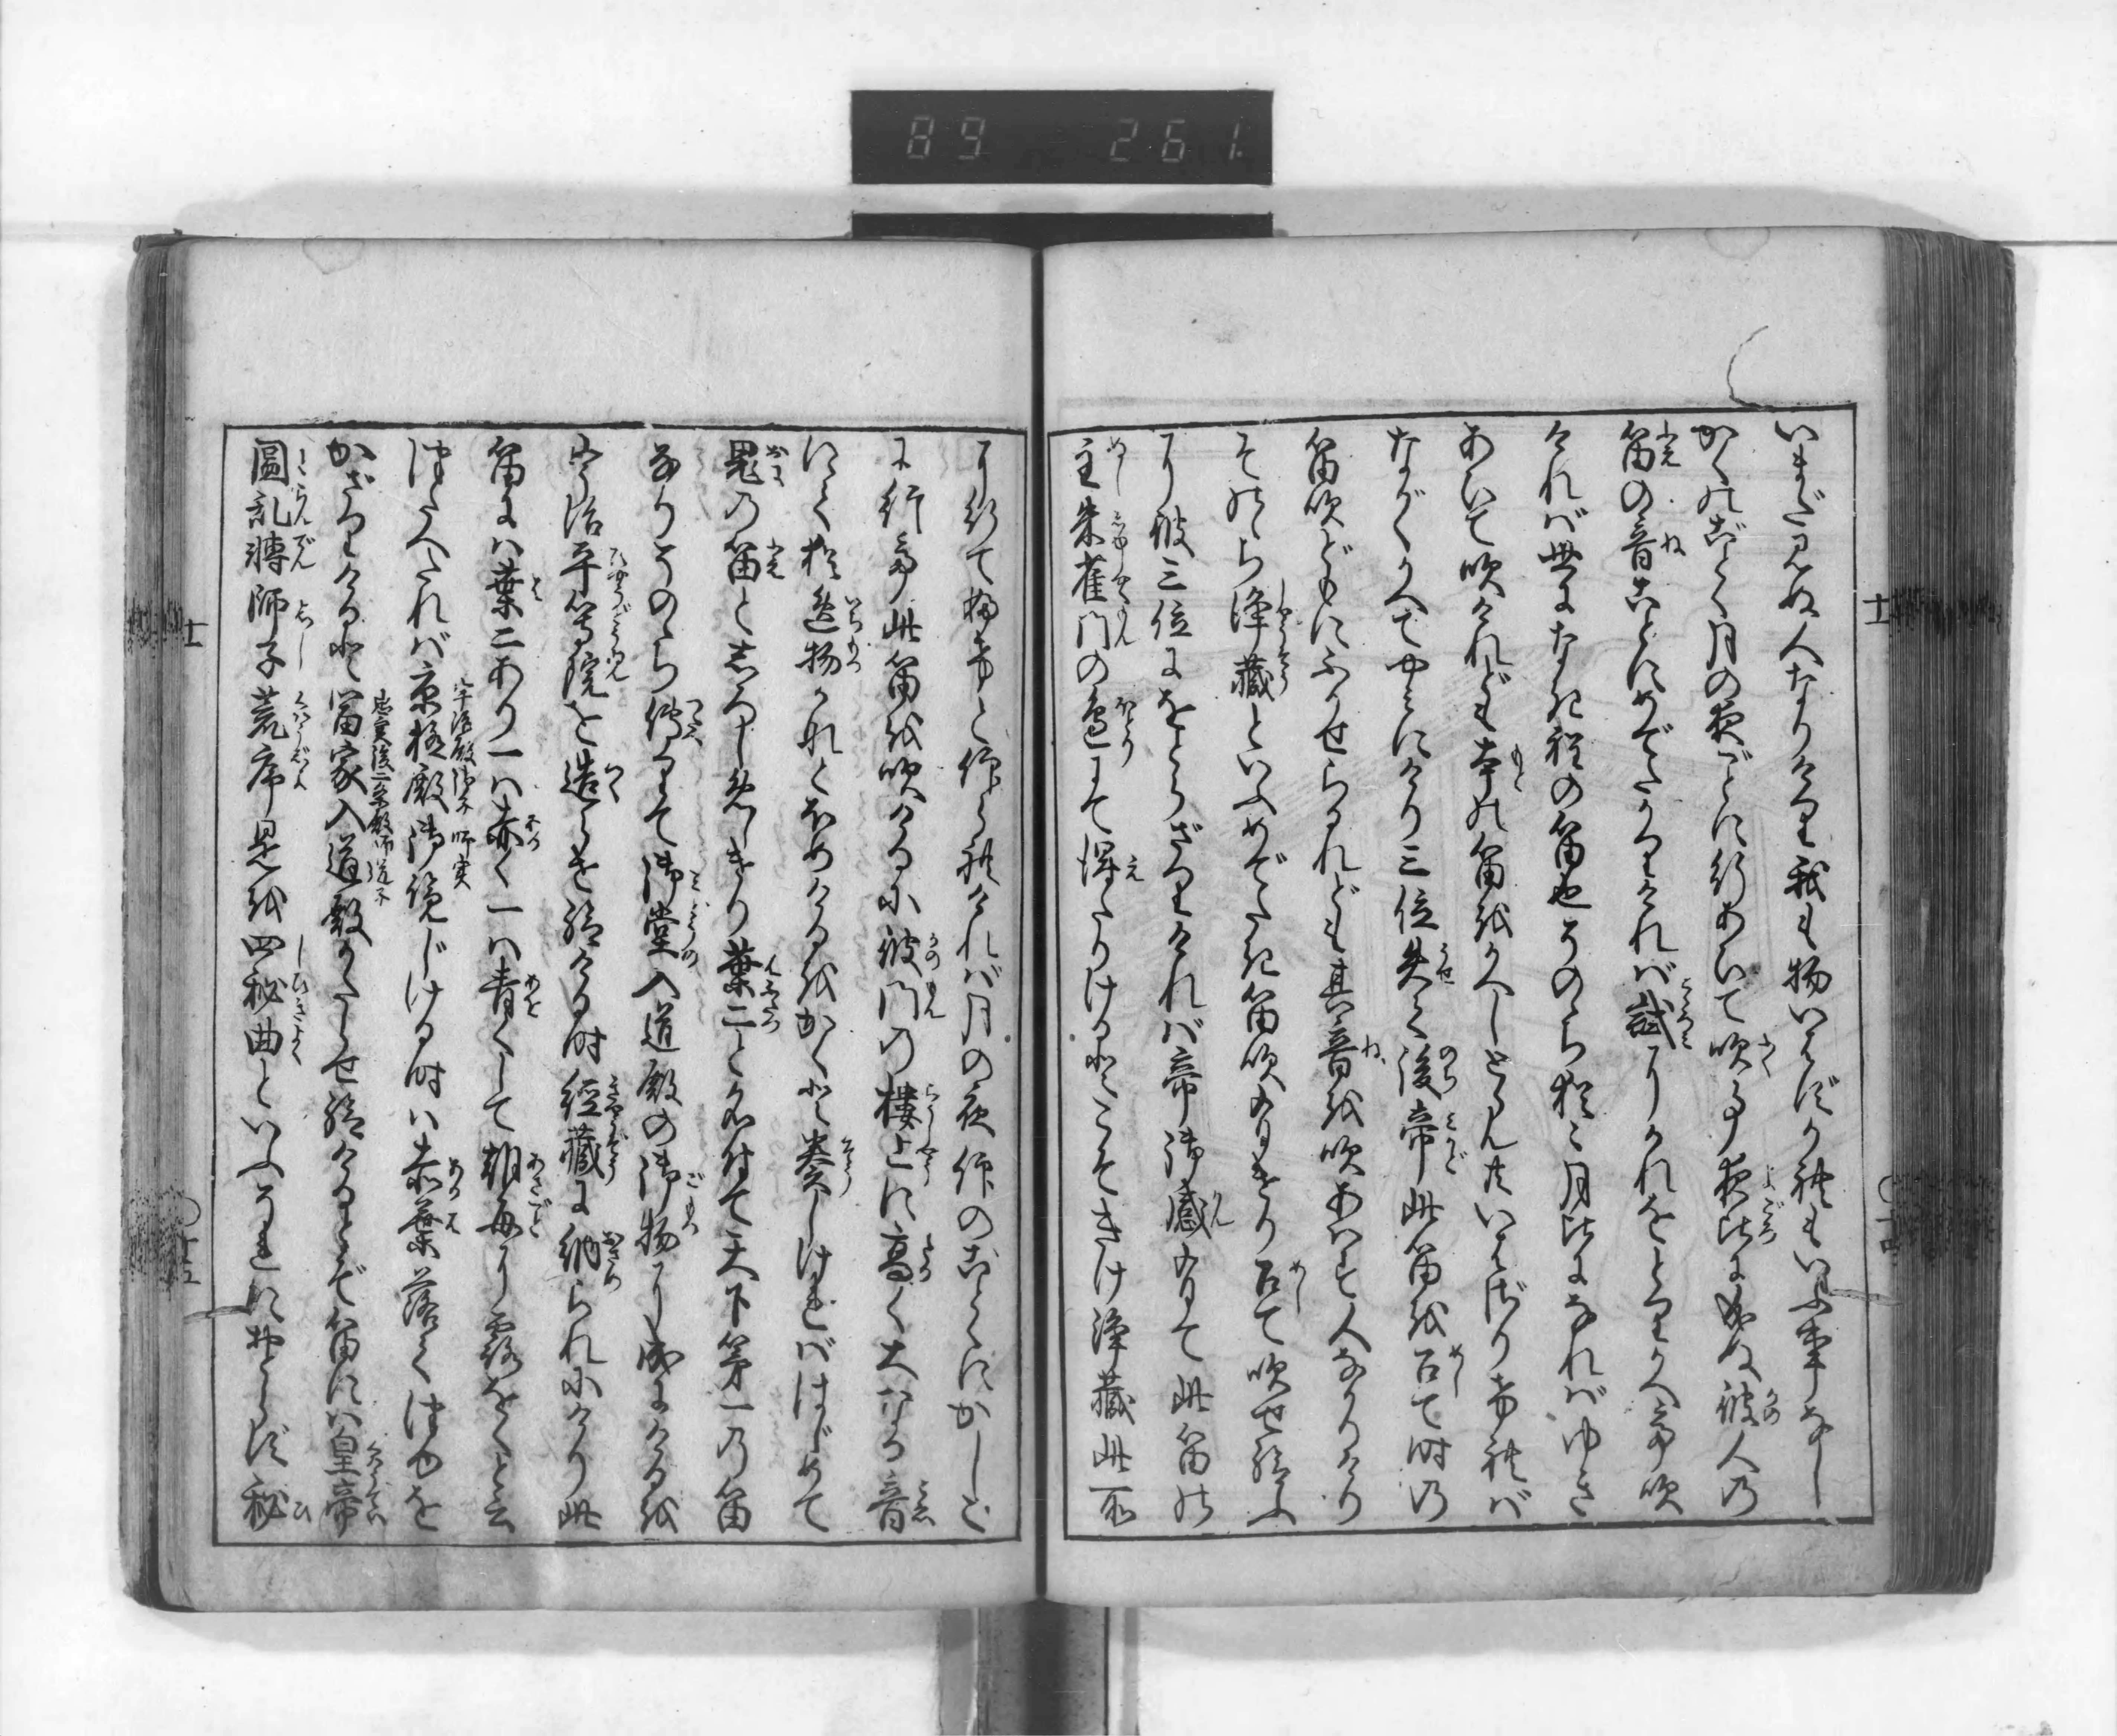 いまだみぬ人なりければ我も物いはずかれもいふ事なし
かくのごとく月の夜ごとに行あひて吹事夜比に成ぬ彼人の
笛の音ことにめでたかりければ試にかれをとりかへて吹
ければ世になき程の笛也そののち猶々月比になればゆき
あひて吹けれども本の笛をかへしとらんともいはざりければ
ながくかへてやみにけり三位失て後帝此笛を召て時の
笛吹どもにふかせらるれども其音を吹あらはす人なかりけり
そののち浄蔵といふめでたき笛吹有けり召て吹せ給ふ
に彼三位にをとらざりければ帝御感有て此笛の
主朱雀門の辺にて得たりけるとこそきけ浄蔵此所
に行て吹けと仰られければ月の夜仰のごとくにかしこ
に行て此笛を吹けるに彼門の楼上に高く大なる音
にて猶逸物かなとほめけるをかくと奏しければはじめて
鬼の笛としろしめしけり葉二と名付て天下第一の笛
なりそののち伝りて御堂入道殿の御物に成にけるを
宇治平等院を造らせ給ける時経蔵に納られにけり此
笛には葉二あり一は赤く一は青くして朝毎に露をくと云
伝へたれば京極殿御覧じける時は赤葉落て露を
宇治殿御子師実
かざりけると冨家入道殿かたらせ給けるとぞ笛には皇帝
忠実後二条殿師通子
團乱轉師子荒序是を四秘曲といふそれにおとらず秘
89 261.